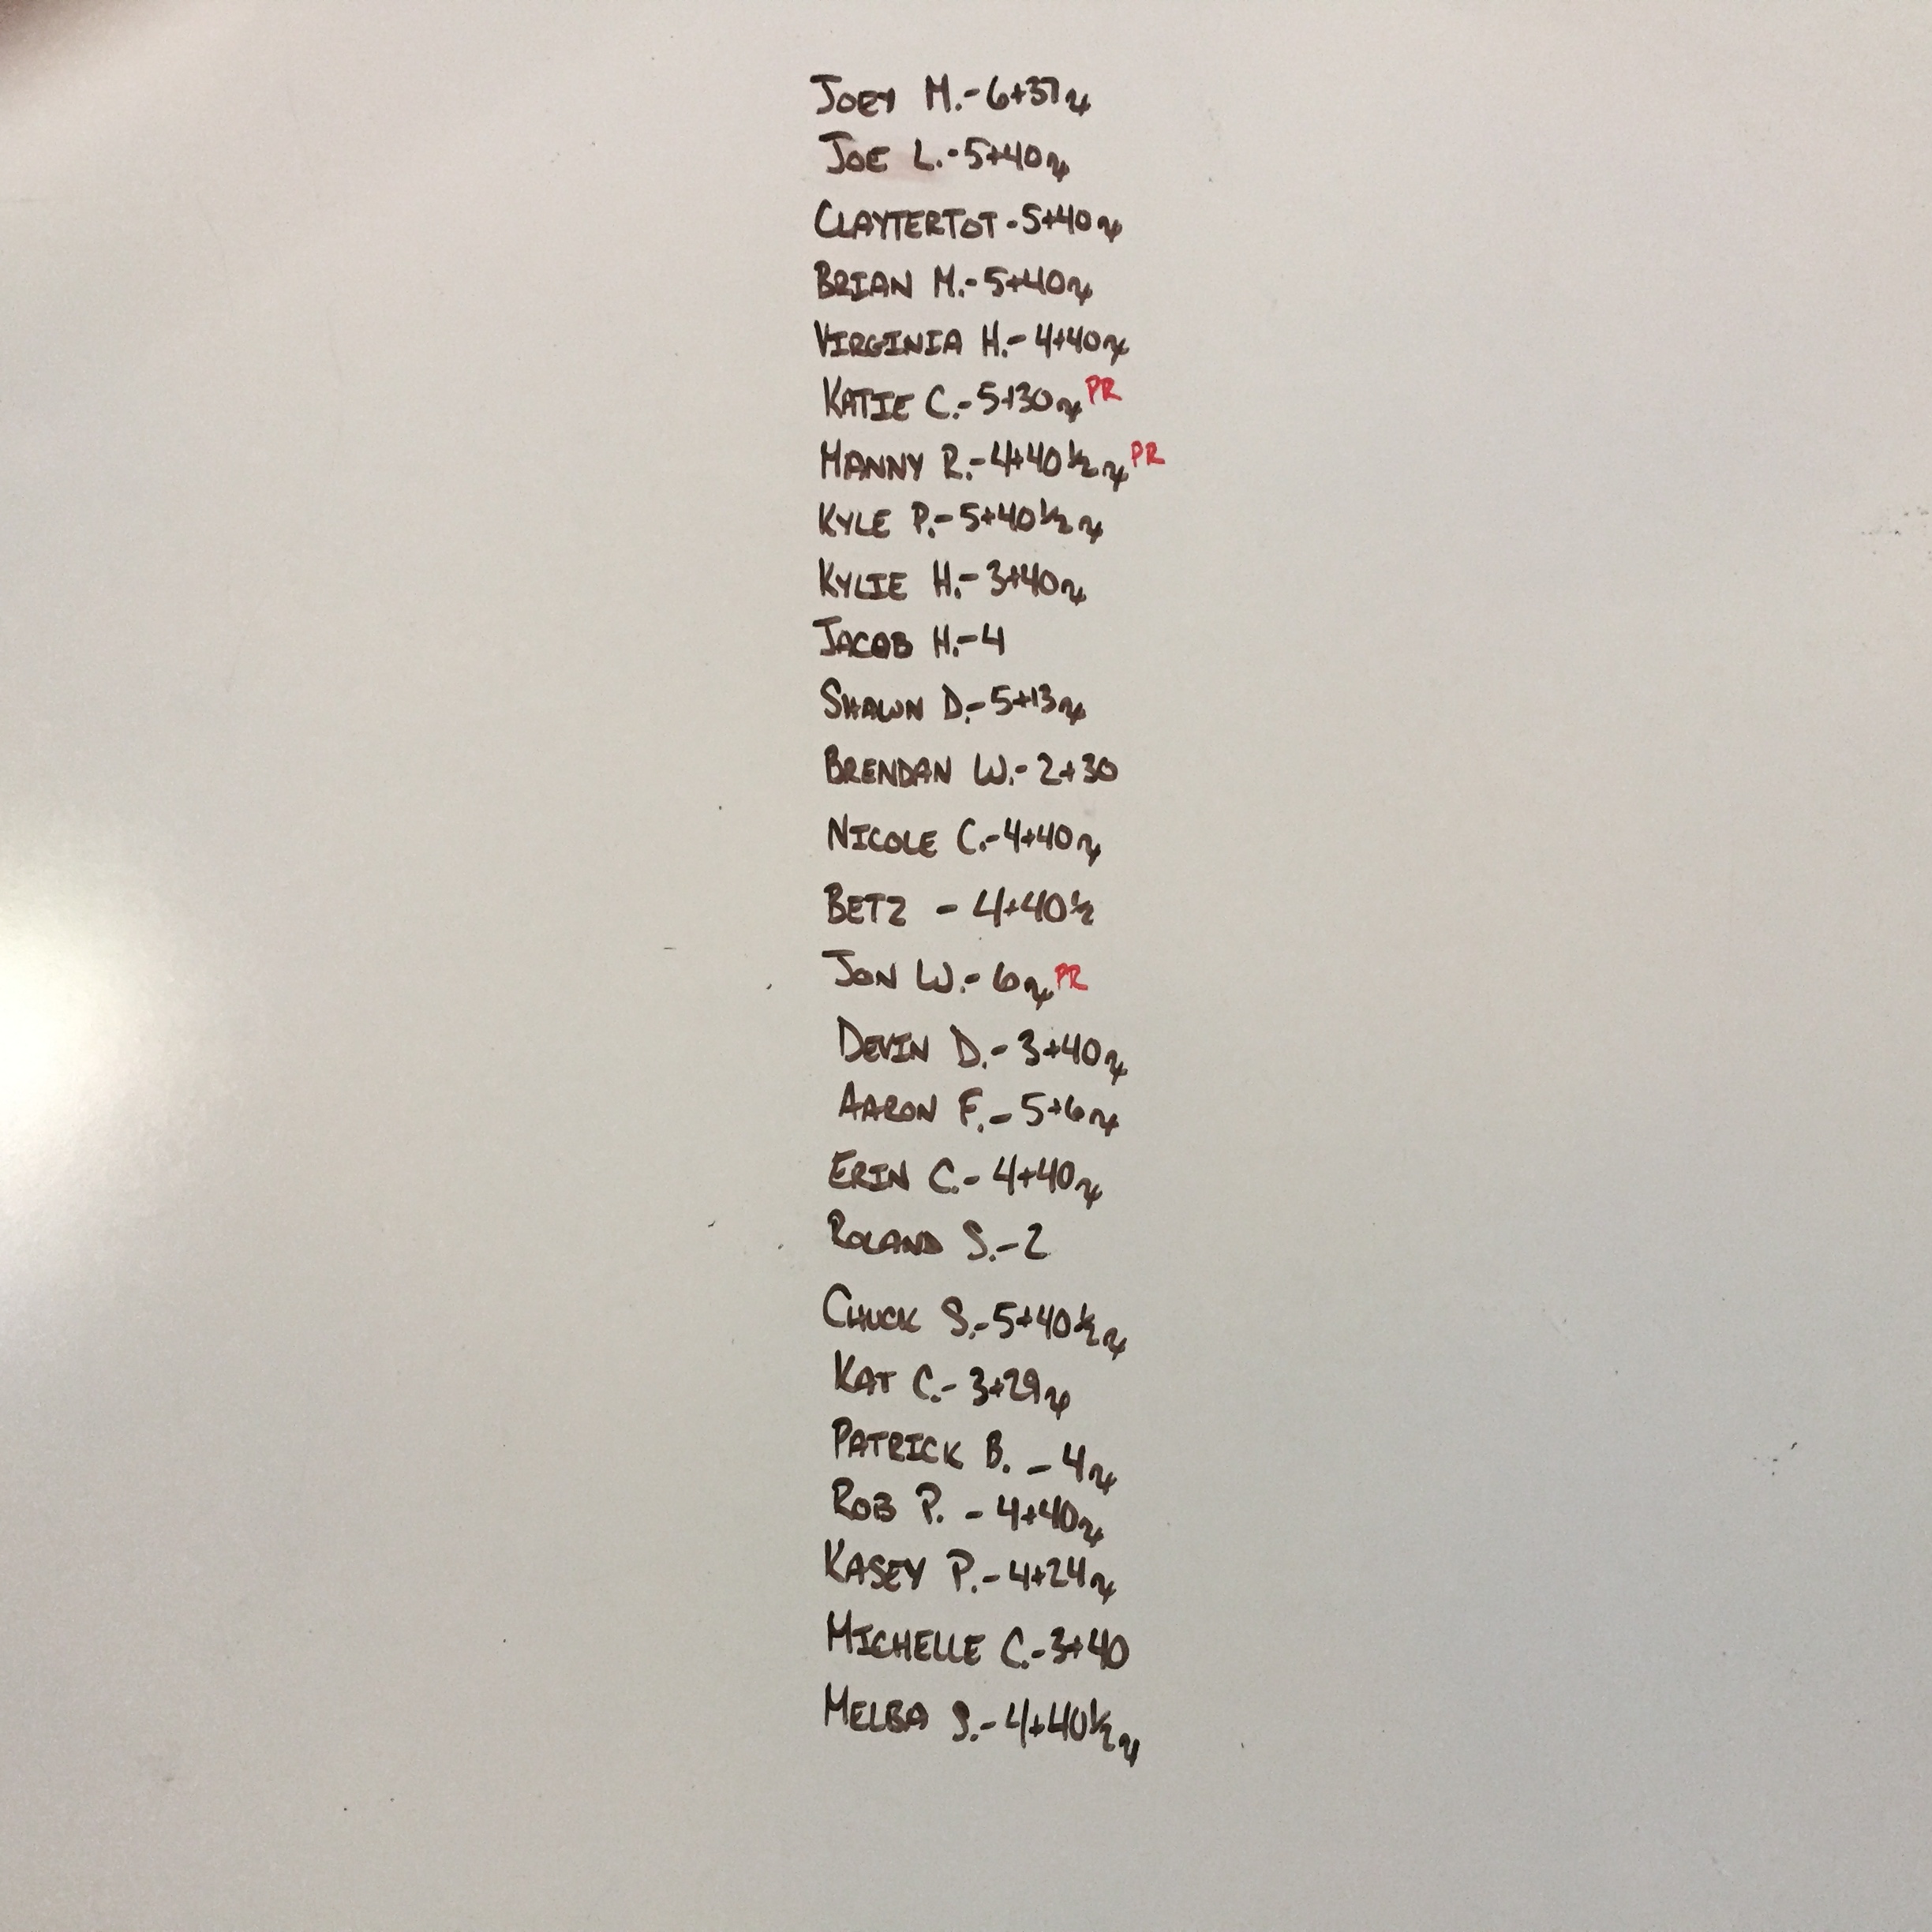 JOEY M.-6+37 rx
JOE L.-5+40 rx
CLAYTERTOT-5+40 rx
BRIAN M.-5+40 rx
VIRGINIA H.-4+40 rx
KATIE C.-5+30 rx PR
MANNY R.-4+40 ½ rx PR
KYLE P.-5+40 ½ rx
KYLIE H.-3+40 rx
JACOB H.-4
SHAWN D.-5+13 rx
BRENDAN W.-2+30
NICOLE C.-4+40 rx
BETZ - 4+40 ½
JON W.-6 rx PR
DEVIN D.-3+40 rx
AARON F.-5+6 rx
ERIN C.-4+40 rx
ROLAND S.-2
CHUCK S.-5+40 ½ rx
KAT C.-3+29 rx
PATRICK B. - 4 rx
ROB P. - 4+40 rx
KASEY P.-4+24 rx
MICHELLE C.-3+40
MELBA S.-4+40 ½ rx